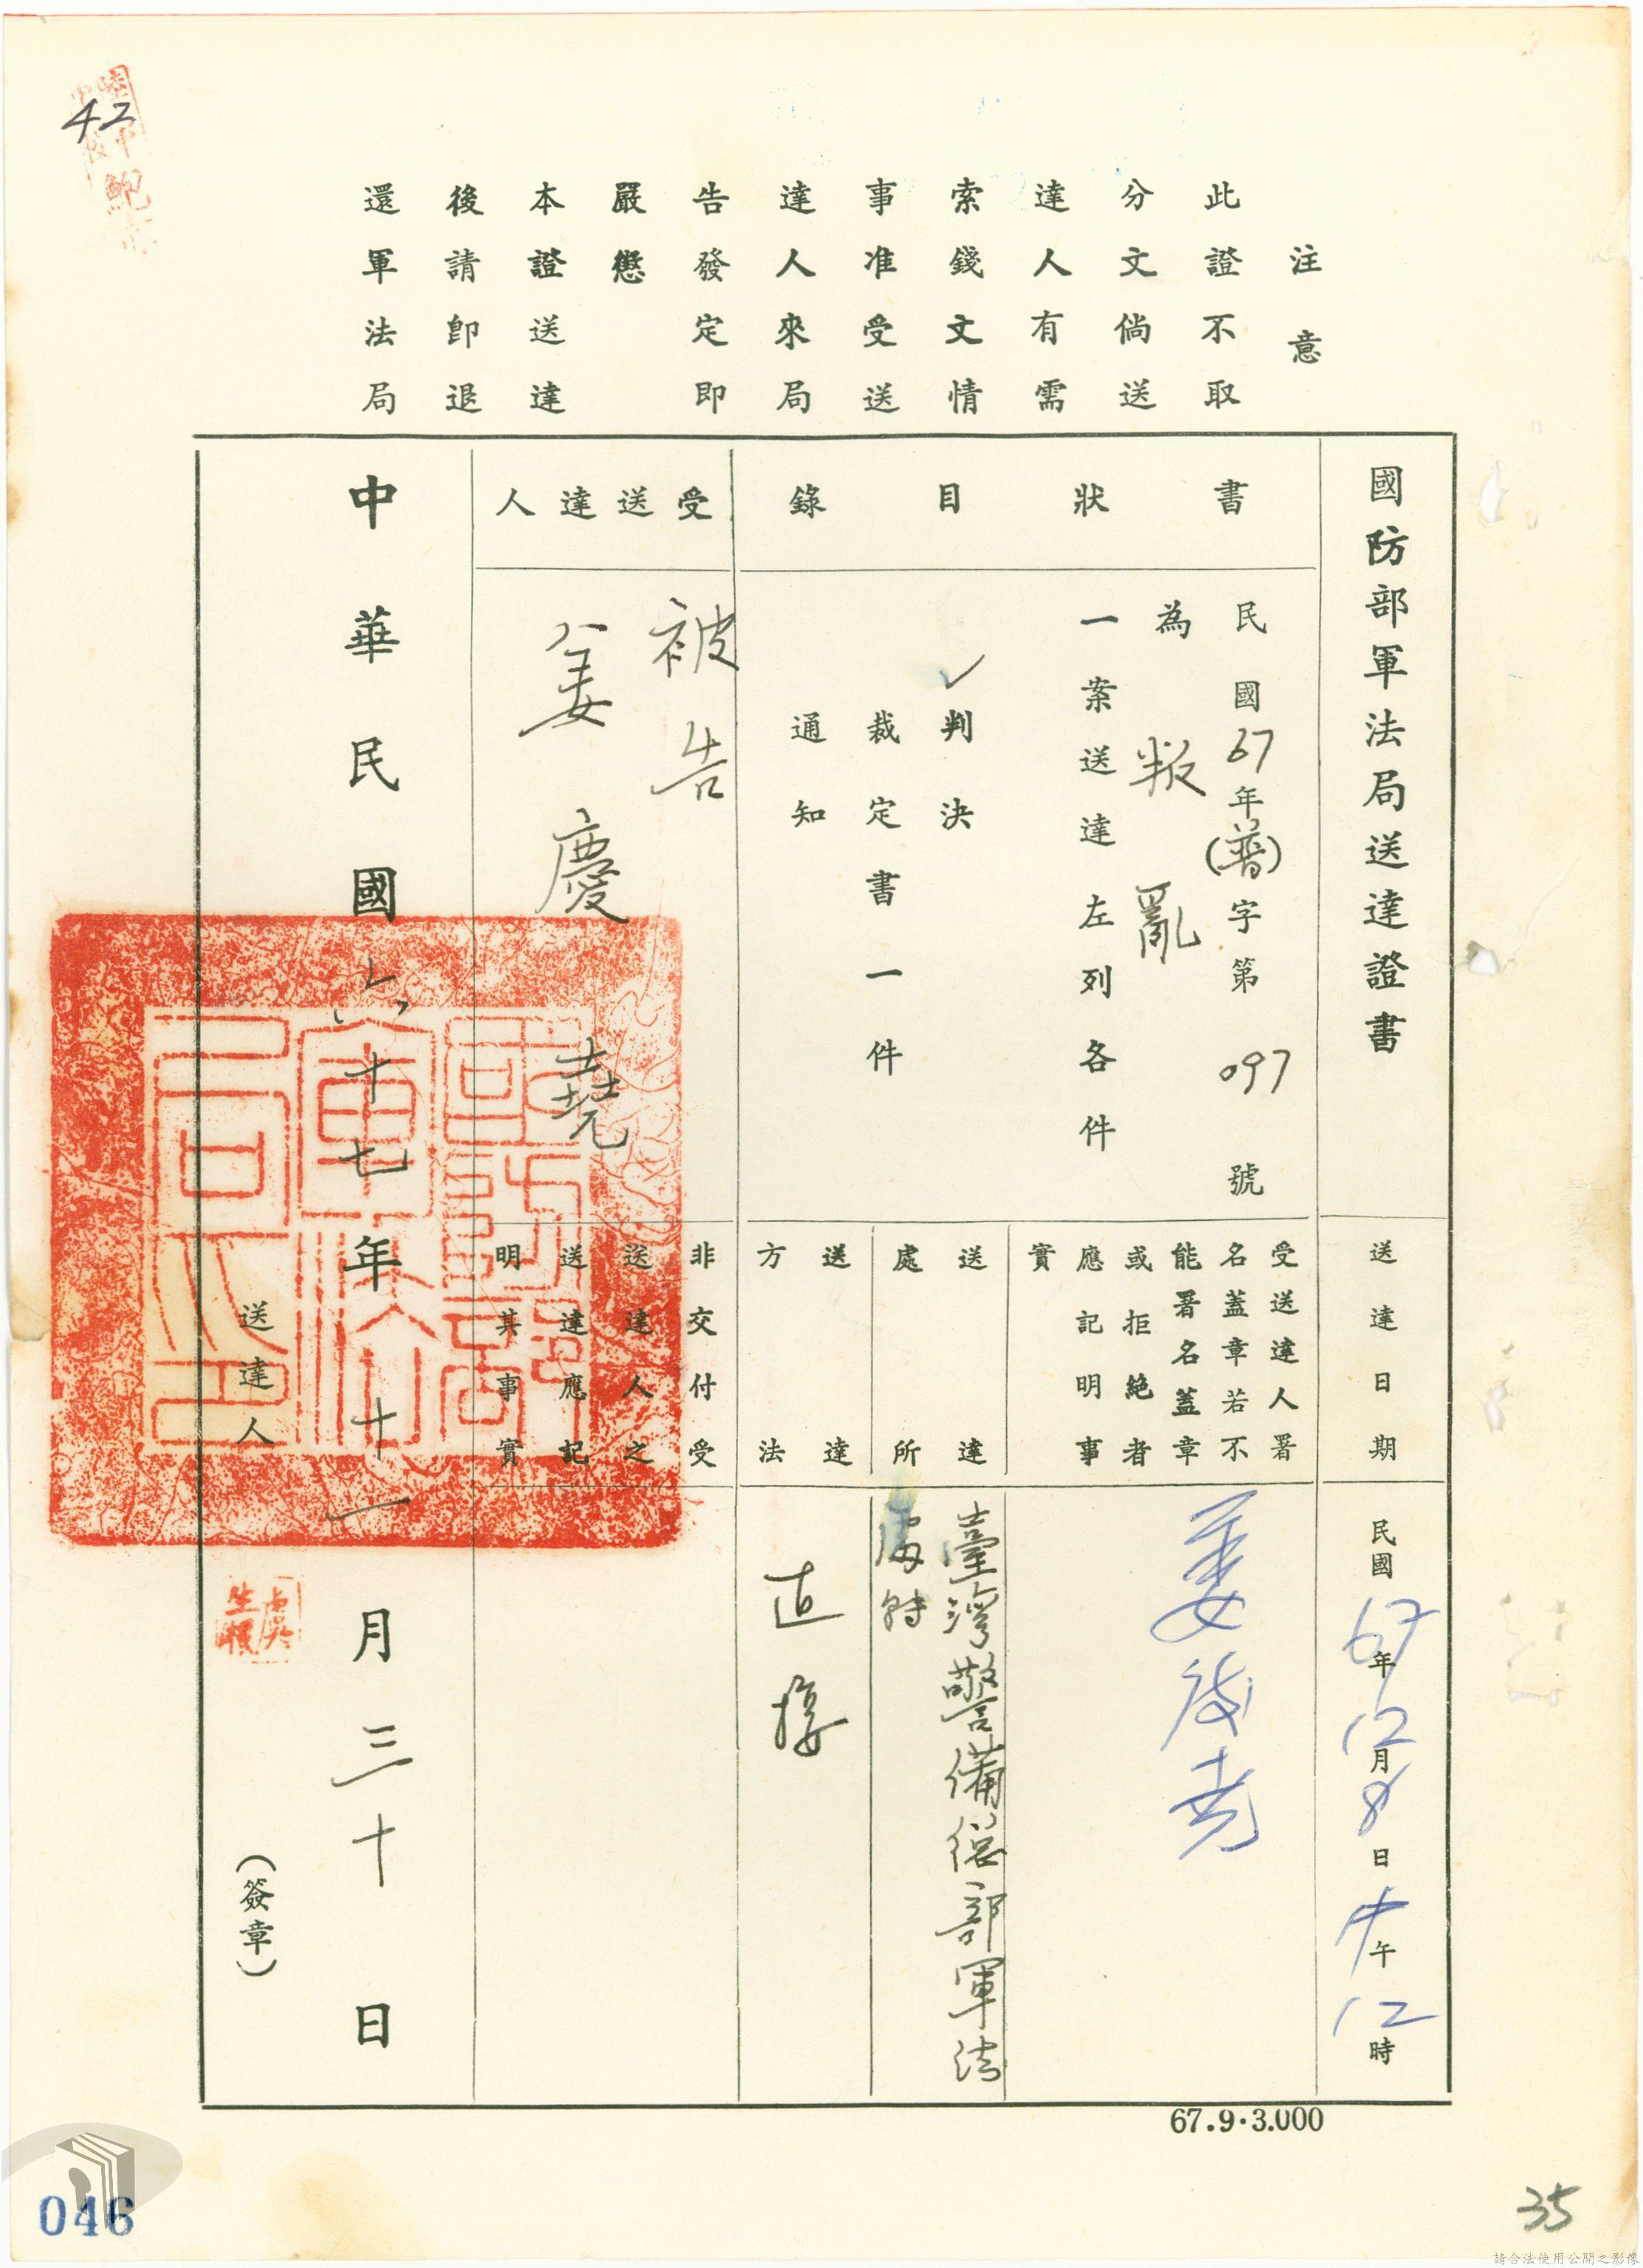 42
注意
此證不取
分文倘送
達人有需
索錢文情
事准受送
達人來局
告發定即
嚴懲
本證送達
後請即退
還軍法局
國防部軍法局送達證書
送達日期
民國67年12月8日中午12時
書狀目錄
民國67年(普)字第097號
為叛亂
一案送達左列各件
✓判決
裁定書一件
通知
受送達人署
名蓋章若不
能署名蓋章
或拒絕者
應記明事
實
姜慶堯
送達
處所
臺灣警備總部軍法
處
送達
方法
直接
受送達人
被告
姜慶堯
非交付受
送達人之
送達應記
明其事實
中華民國六十七年十一月三十日
國防部軍法局之印
送達人
(簽章)
67.9.3.000
046
35
請合法使用公開之影像